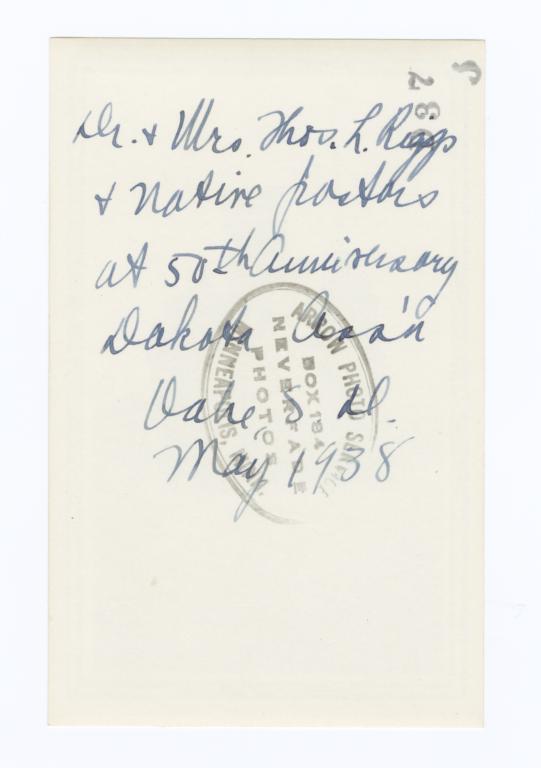 Dr. & Mrs. Thos. L. Riggs
& native pastors
at 50th Anniversary
Dakota Ass'n
Oahe S. D.
May 1938
ARROW PHOTO SERVICE
BOX 184
NEVERFADE
PHOTOS
MINNEAPOLIS, MINN.